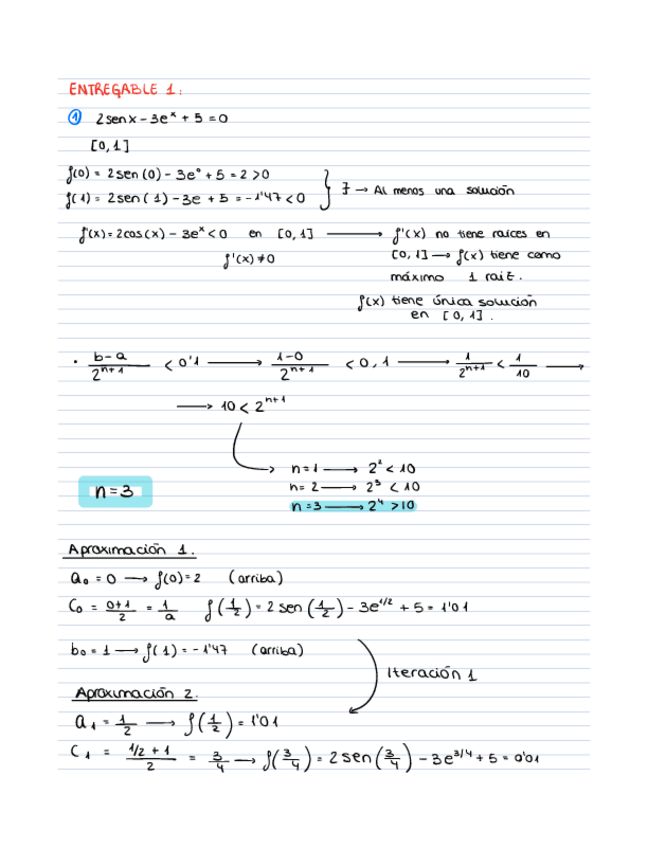 ENTREGABLE 1:
① 2senx - 3eˣ + 5 = 0
[0,1]
f(0) = 2sen(0) - 3e⁰ + 5 = 2 > 0
f(1) = 2sen(1) - 3e + 5 = -1'47 < 0
} ∃ → Al menos una solución
f'(x) = 2cos(x) - 3eˣ < 0 en [0,1] → f'(x) no tiene raíces en
f'(x) ≠ 0
[0,1] → f(x) tiene como
máximo 1 raíz.
f(x) tiene única solución
en [0,1].
· b-a/2ⁿ⁺¹ < 0'1 → 1-0/2ⁿ⁺¹ < 0,1 → 1/2ⁿ⁺¹ < 1/10 →
→ 10 < 2ⁿ⁺¹
n=1 → 2² < 10
n=2 → 2³ < 10
n=3 → 2⁴ > 10
n=3
Aproximación 1.
a₀ = 0 → f(0) = 2 (arriba)
C₀ = 0+1/2 = 1/a f(1/2) = 2sen(1/2) - 3e^1/2 + 5 = 1'01
b₀ = 1 → f(1) = -1'47 (arriba)
Iteración 1
Aproximación 2.
a₁ = 1/2 → f(1/2) = 1'01
C₁ = 1/2 + 1/2 = 3/4 → f(3/4) = 2sen(3/4) - 3e^3/4 + 5 = 0'01